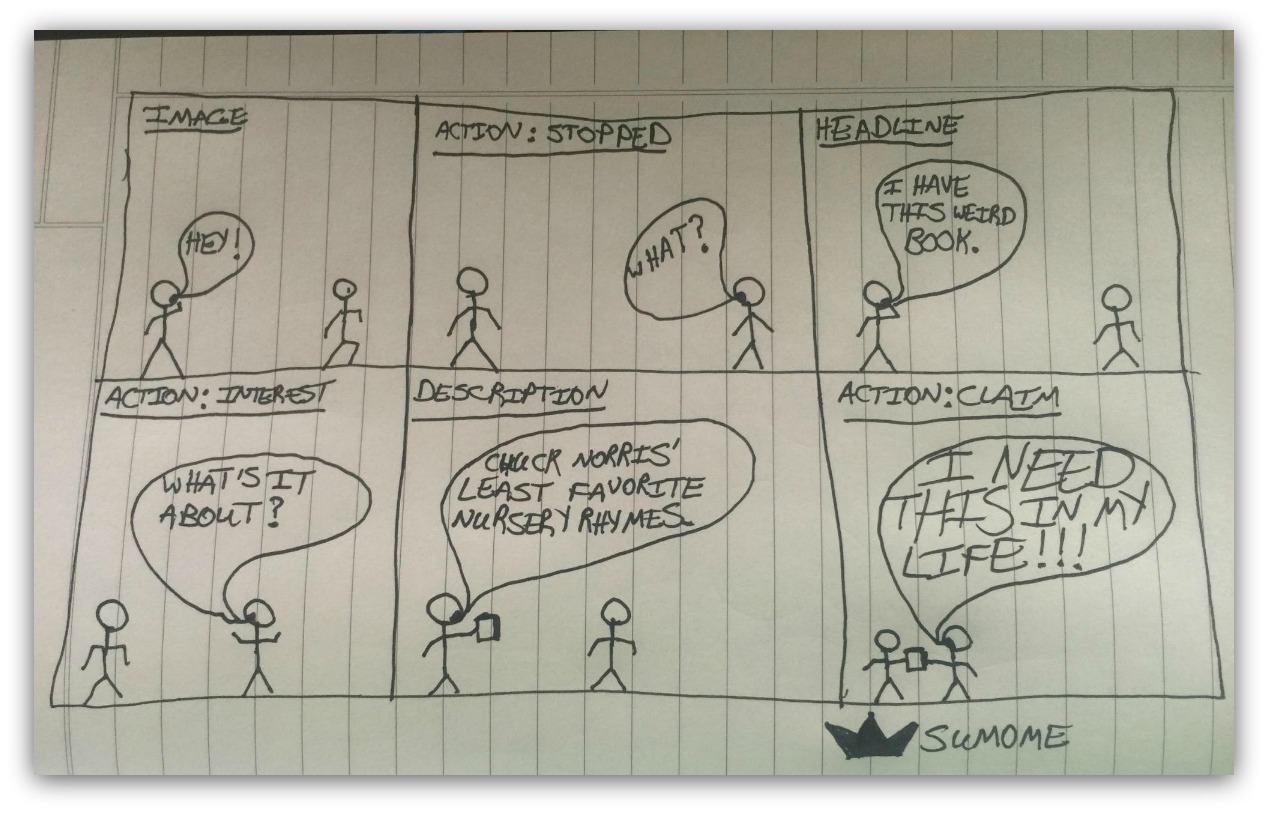 IMAGE
HEY!
ACTION: STOPPED
WHAT?
HEADLINE
I HAVE
THIS WEIRD
BOOK.
ACTION: INTEREST
WHAT'S IT
ABOUT?
DESCRIPTION
CHUCK NORRIS'
LEAST FAVORITE
NURSERY RHYMES.
ACTION: CLAIM
I NEED
THIS IN MY
LIFE!!!
SUMOME